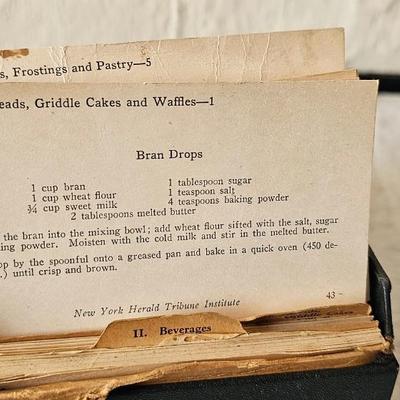 s, Frostings and Pastry—5
eads, Griddle Cakes and Waffles—1
Bran Drops
1 cup bran 1 tablespoon sugar
1 cup wheat flour 1 teaspoon salt
¾ cup sweet milk 4 teaspoons baking powder
2 tablespoons melted butter
the bran into the mixing bowl; add wheat flour sifted with the salt, sugar
ing powder. Moisten with the cold milk and stir in the melted butter.
op by the spoonful onto a greased pan and bake in a quick oven (450 de-
.) until crisp and brown.
New York Herald Tribune Institute 43 -
Griddle Cakes
II. Beverages